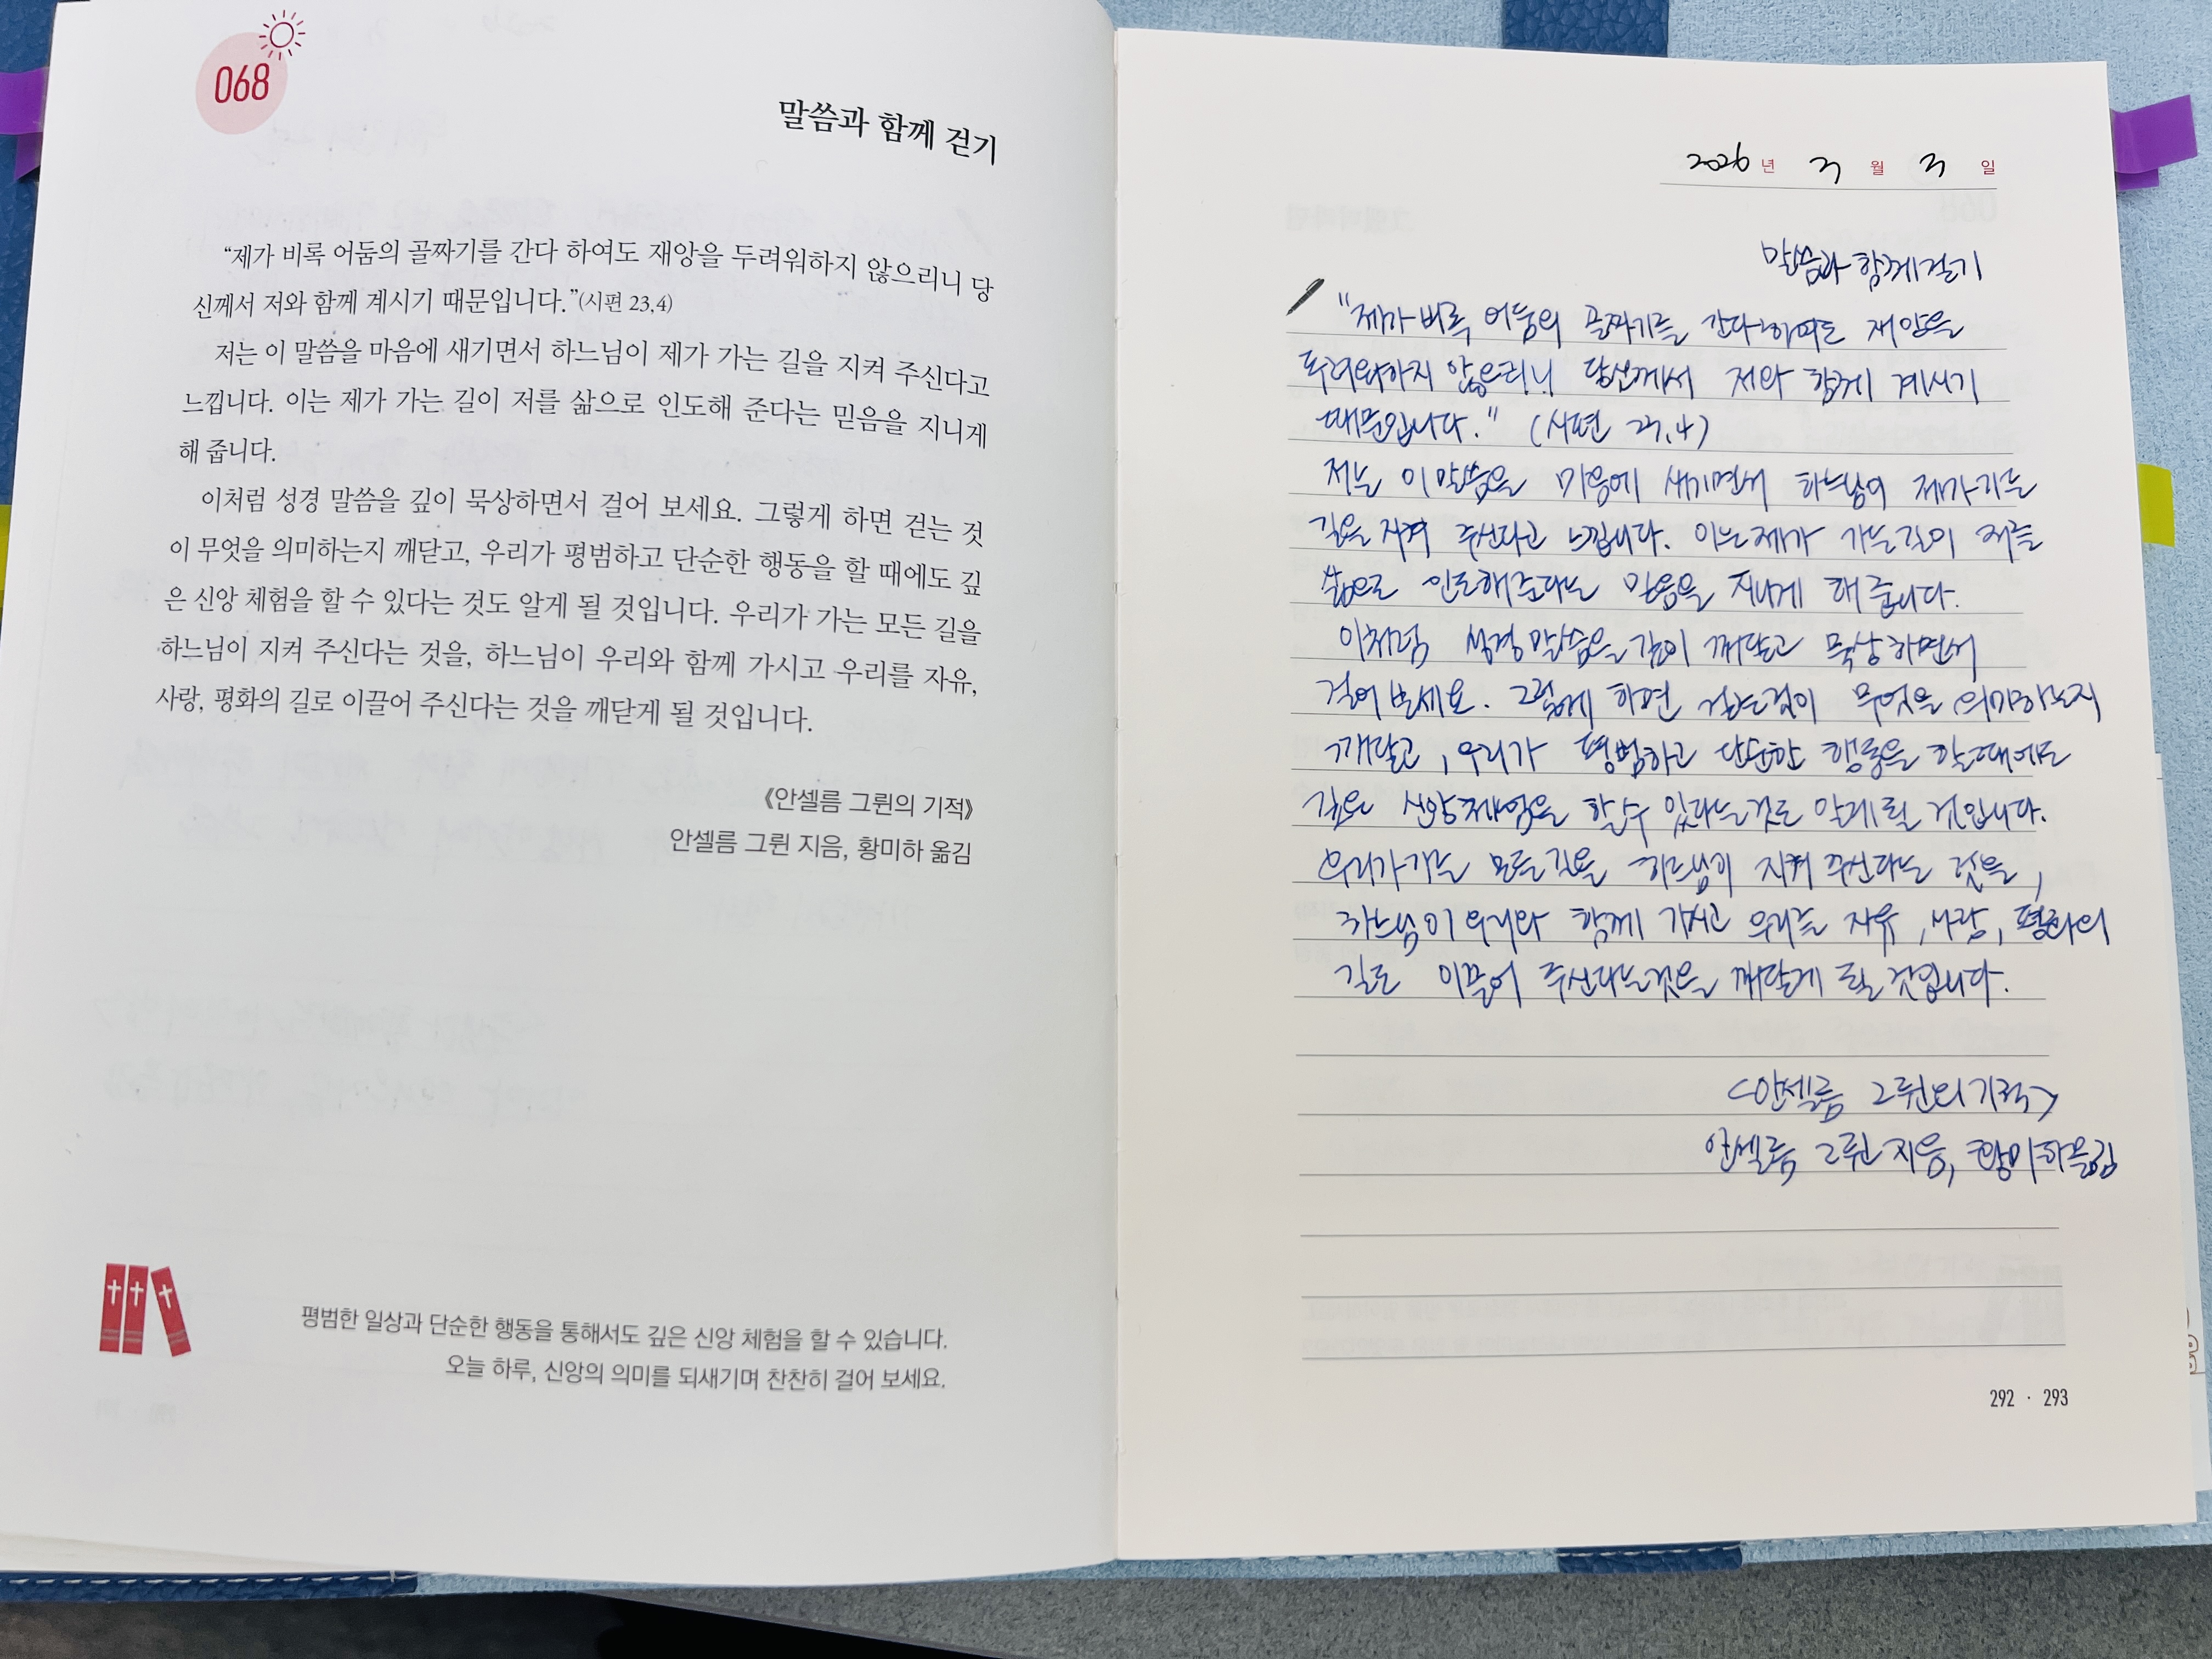 068
말씀과 함께 걷기
“제가 비록 어둠의 골짜기를 간다 하여도 재앙을 두려워하지 않으리니 당
신께서 저와 함께 계시기 때문입니다.”(시편 23,4)
저는 이 말씀을 마음에 새기면서 하느님이 제가 가는 길을 지켜 주신다고
느낍니다. 이는 제가 가는 길이 저를 삶으로 인도해 준다는 믿음을 지니게
해 줍니다.
이처럼 성경 말씀을 깊이 묵상하면서 걸어 보세요. 그렇게 하면 걷는 것
이 무엇을 의미하는지 깨닫고, 우리가 평범하고 단순한 행동을 할 때에도 깊
은 신앙 체험을 할 수 있다는 것도 알게 될 것입니다. 우리가 가는 모든 길을
하느님이 지켜 주신다는 것을, 하느님이 우리와 함께 가시고 우리를 자유,
사랑, 평화의 길로 이끌어 주신다는 것을 깨닫게 될 것입니다.
《안셀름 그륀의 기적》
안셀름 그륀 지음, 황미하 옮김
평범한 일상과 단순한 행동을 통해서도 깊은 신앙 체험을 할 수 있습니다.
오늘 하루, 신앙의 의미를 되새기며 찬찬히 걸어 보세요.
2026년 3월 3일
말씀과 함께 걷기
"제가 비록 어둠의 골짜기를 간다 하여도 재앙을
두려워하지 않으리니 당신께서 저와 함께 계시기
때문입니다." (시편 23,4)
저는 이 말씀을 마음에 새기면서 하느님이 제가 가는
길을 지켜 주신다고 느낍니다. 이는 제가 가는 길이 저를
삶으로 인도해 준다는 믿음을 지니게 해 줍니다.
이처럼 성경 말씀을 깊이 깨닫고 묵상하면서
걸어 보세요. 그렇게 하면 걷는 것이 무엇을 의미하는지
깨닫고, 우리가 평범하고 단순한 행동을 할 때에도
깊은 신앙 체험을 할 수 있다는 것도 알게 될 것입니다.
우리가 가는 모든 길을 하느님이 지켜 주신다는 것을,
하느님이 우리와 함께 가시고 우리를 자유, 사랑, 평화의
길로 이끌어 주신다는 것을 깨닫게 될 것입니다.
<안셀름 그륀의 기적>
안셀름 그륀 지음, 황미하 옮김
292 · 293